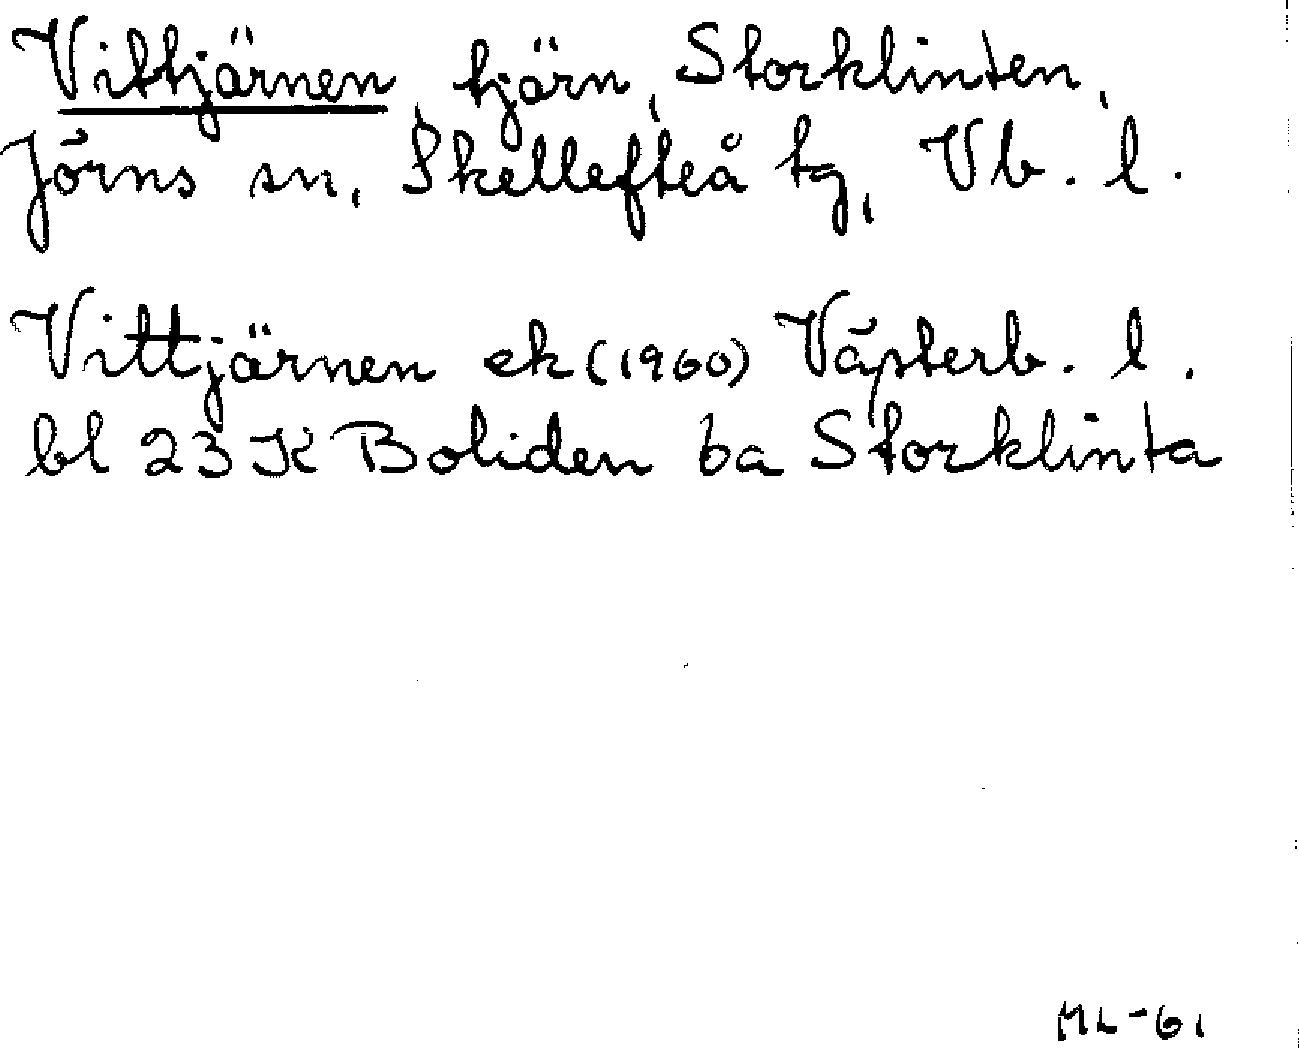 Vittjärnen, tjärn, Storklinten,
Jörns sn, Skellefteå tg, Vb. l.
Vittjärnen ek (1960) Västerb. l.
bl 23 K Boliden ba Storklinta
ML-61